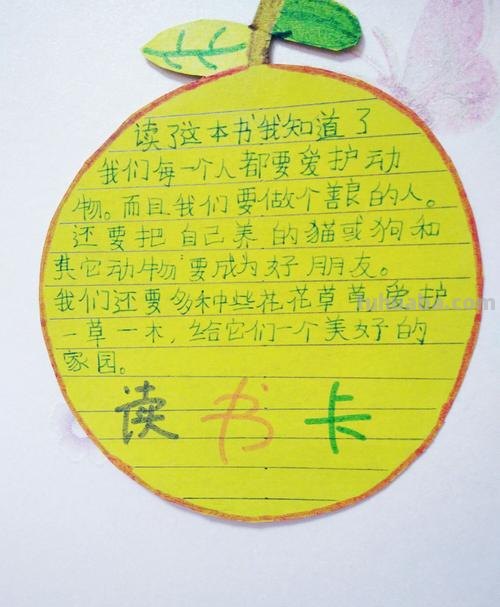 读了这本书我知道了
我们每一个人都要爱护动
物。而且我们要做个善良的人。
还要把自己养的猫或狗和
其它动物要成为好朋友。
我们还要多种些花花草草爱护
一草一木，给它们一个美好的
家园。
读书卡